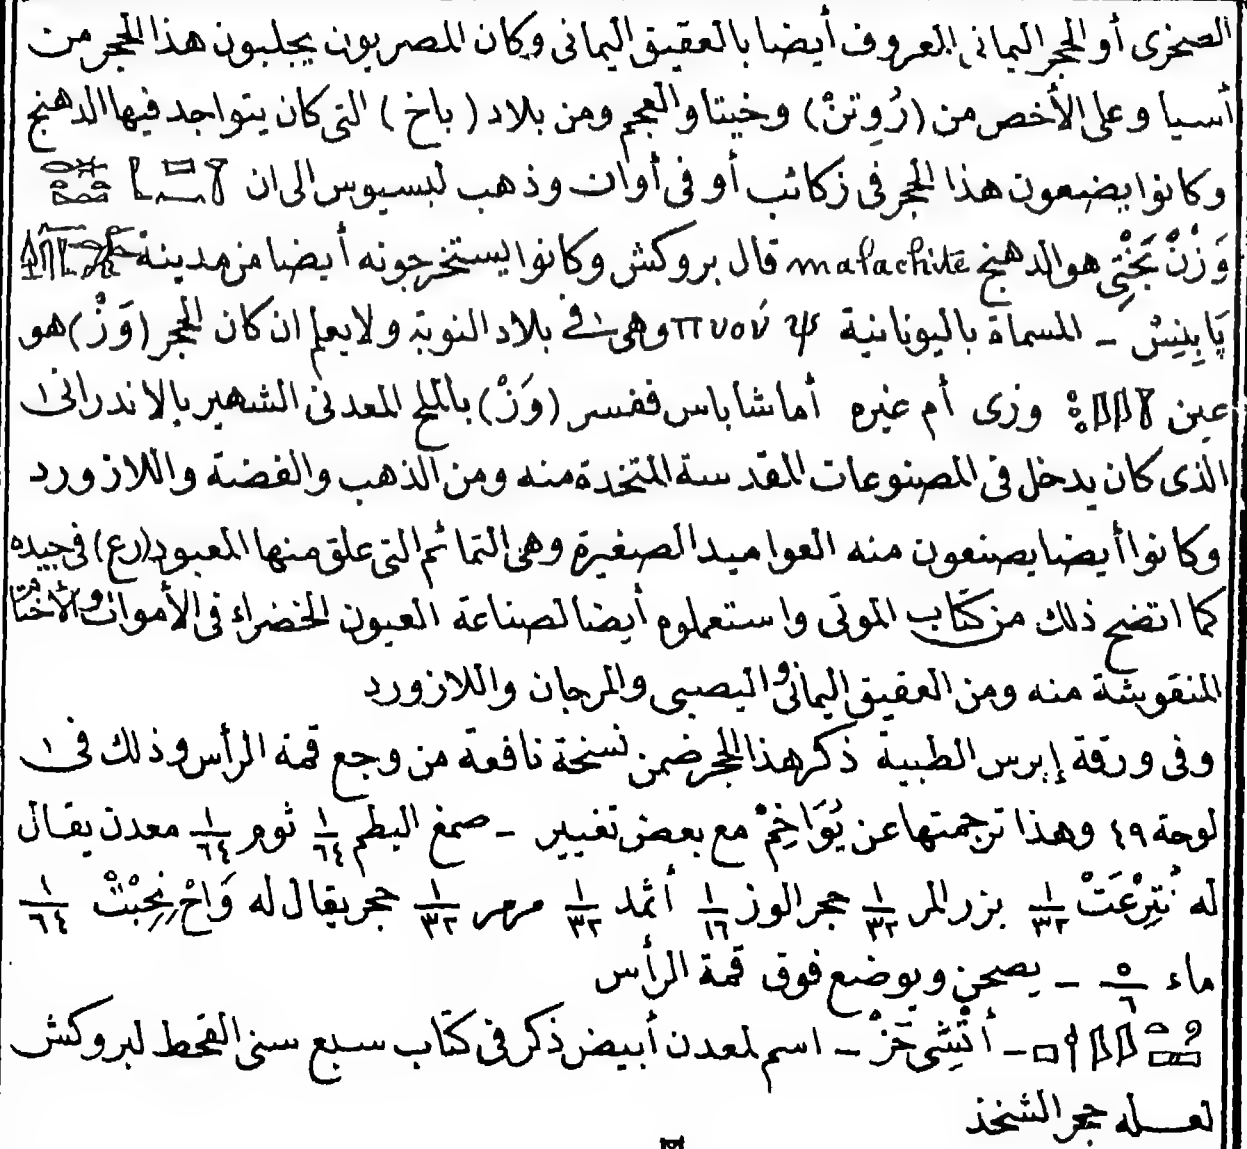 الصخرى أو الحجر اليمانى المعروف أيضا بالعقيق اليمانى وكان المصريون يجلبون هذا الحجر من
أسيا وعلى الأخص من (رُوتِنْ) وخيتا والعجم ومن بلاد (باخ) التى كان يتواجد فيها الدهنج
وكانوا يضعون هذا الحجر فى زكائب أو فى أوان وذهب لبسيوس الى ان
وَزْنْ بَخْتِى هو الدهنج malachite قال بروكش وكانوا يستخرجونه أيضا من مدينة
پَابِنِسْ – المسماة باليونانية πνούψ وهى فى بلاد النوبة ولا يعلم ان كان الحجر (وَزْ) هو
عين وزى أم غيره أما شاباس ففسر (وَزْ) بالملح المعدنى الشهير بالاندرانى
الذى كان يدخل فى المصنوعات المقدسة المتخذة منه ومن الذهب والفضة واللازورد
وكانوا أيضا يصنعون منه العواميد الصغيرة وهى التمائم التى علق منها المعبود (رع) فى جيده
كما اتضح ذلك من كتاب الموتى واستعملوه أيضا لصناعة العيون الخضراء فى الأموات
المنقوشة منه ومن العقيق اليمانى واليصبى والمرجان واللازورد
وفى ورقة إبرس الطبية ذكر هذا الحجر ضمن نسخة نافعة من وجع قمة الرأس وذلك فى
لوحة ٤٩ وهذا ترجمتها عن يُوَاخِمْ مع بعض تغيير – صمغ البطم ١/٦٤ ثوم ١/٦٤ معدن يقال
له نُتِرْعَتْ ١/٣٢ بزر المر ١/٣٢ حجر الوز ١/١٦ أثمد ١/٣٢ مرمر ١/٣٢ حجر يقال له وَاحْ نِحِبْتْ ١/٦٤
ماء ٥/٦ – يصحن ويوضع فوق قمة الرأس
– أَنْشِى خَزْ – اسم لمعدن أبيض ذكر فى كتاب سبع سنى القحط لبروكش
لعله حجر الشنخذ